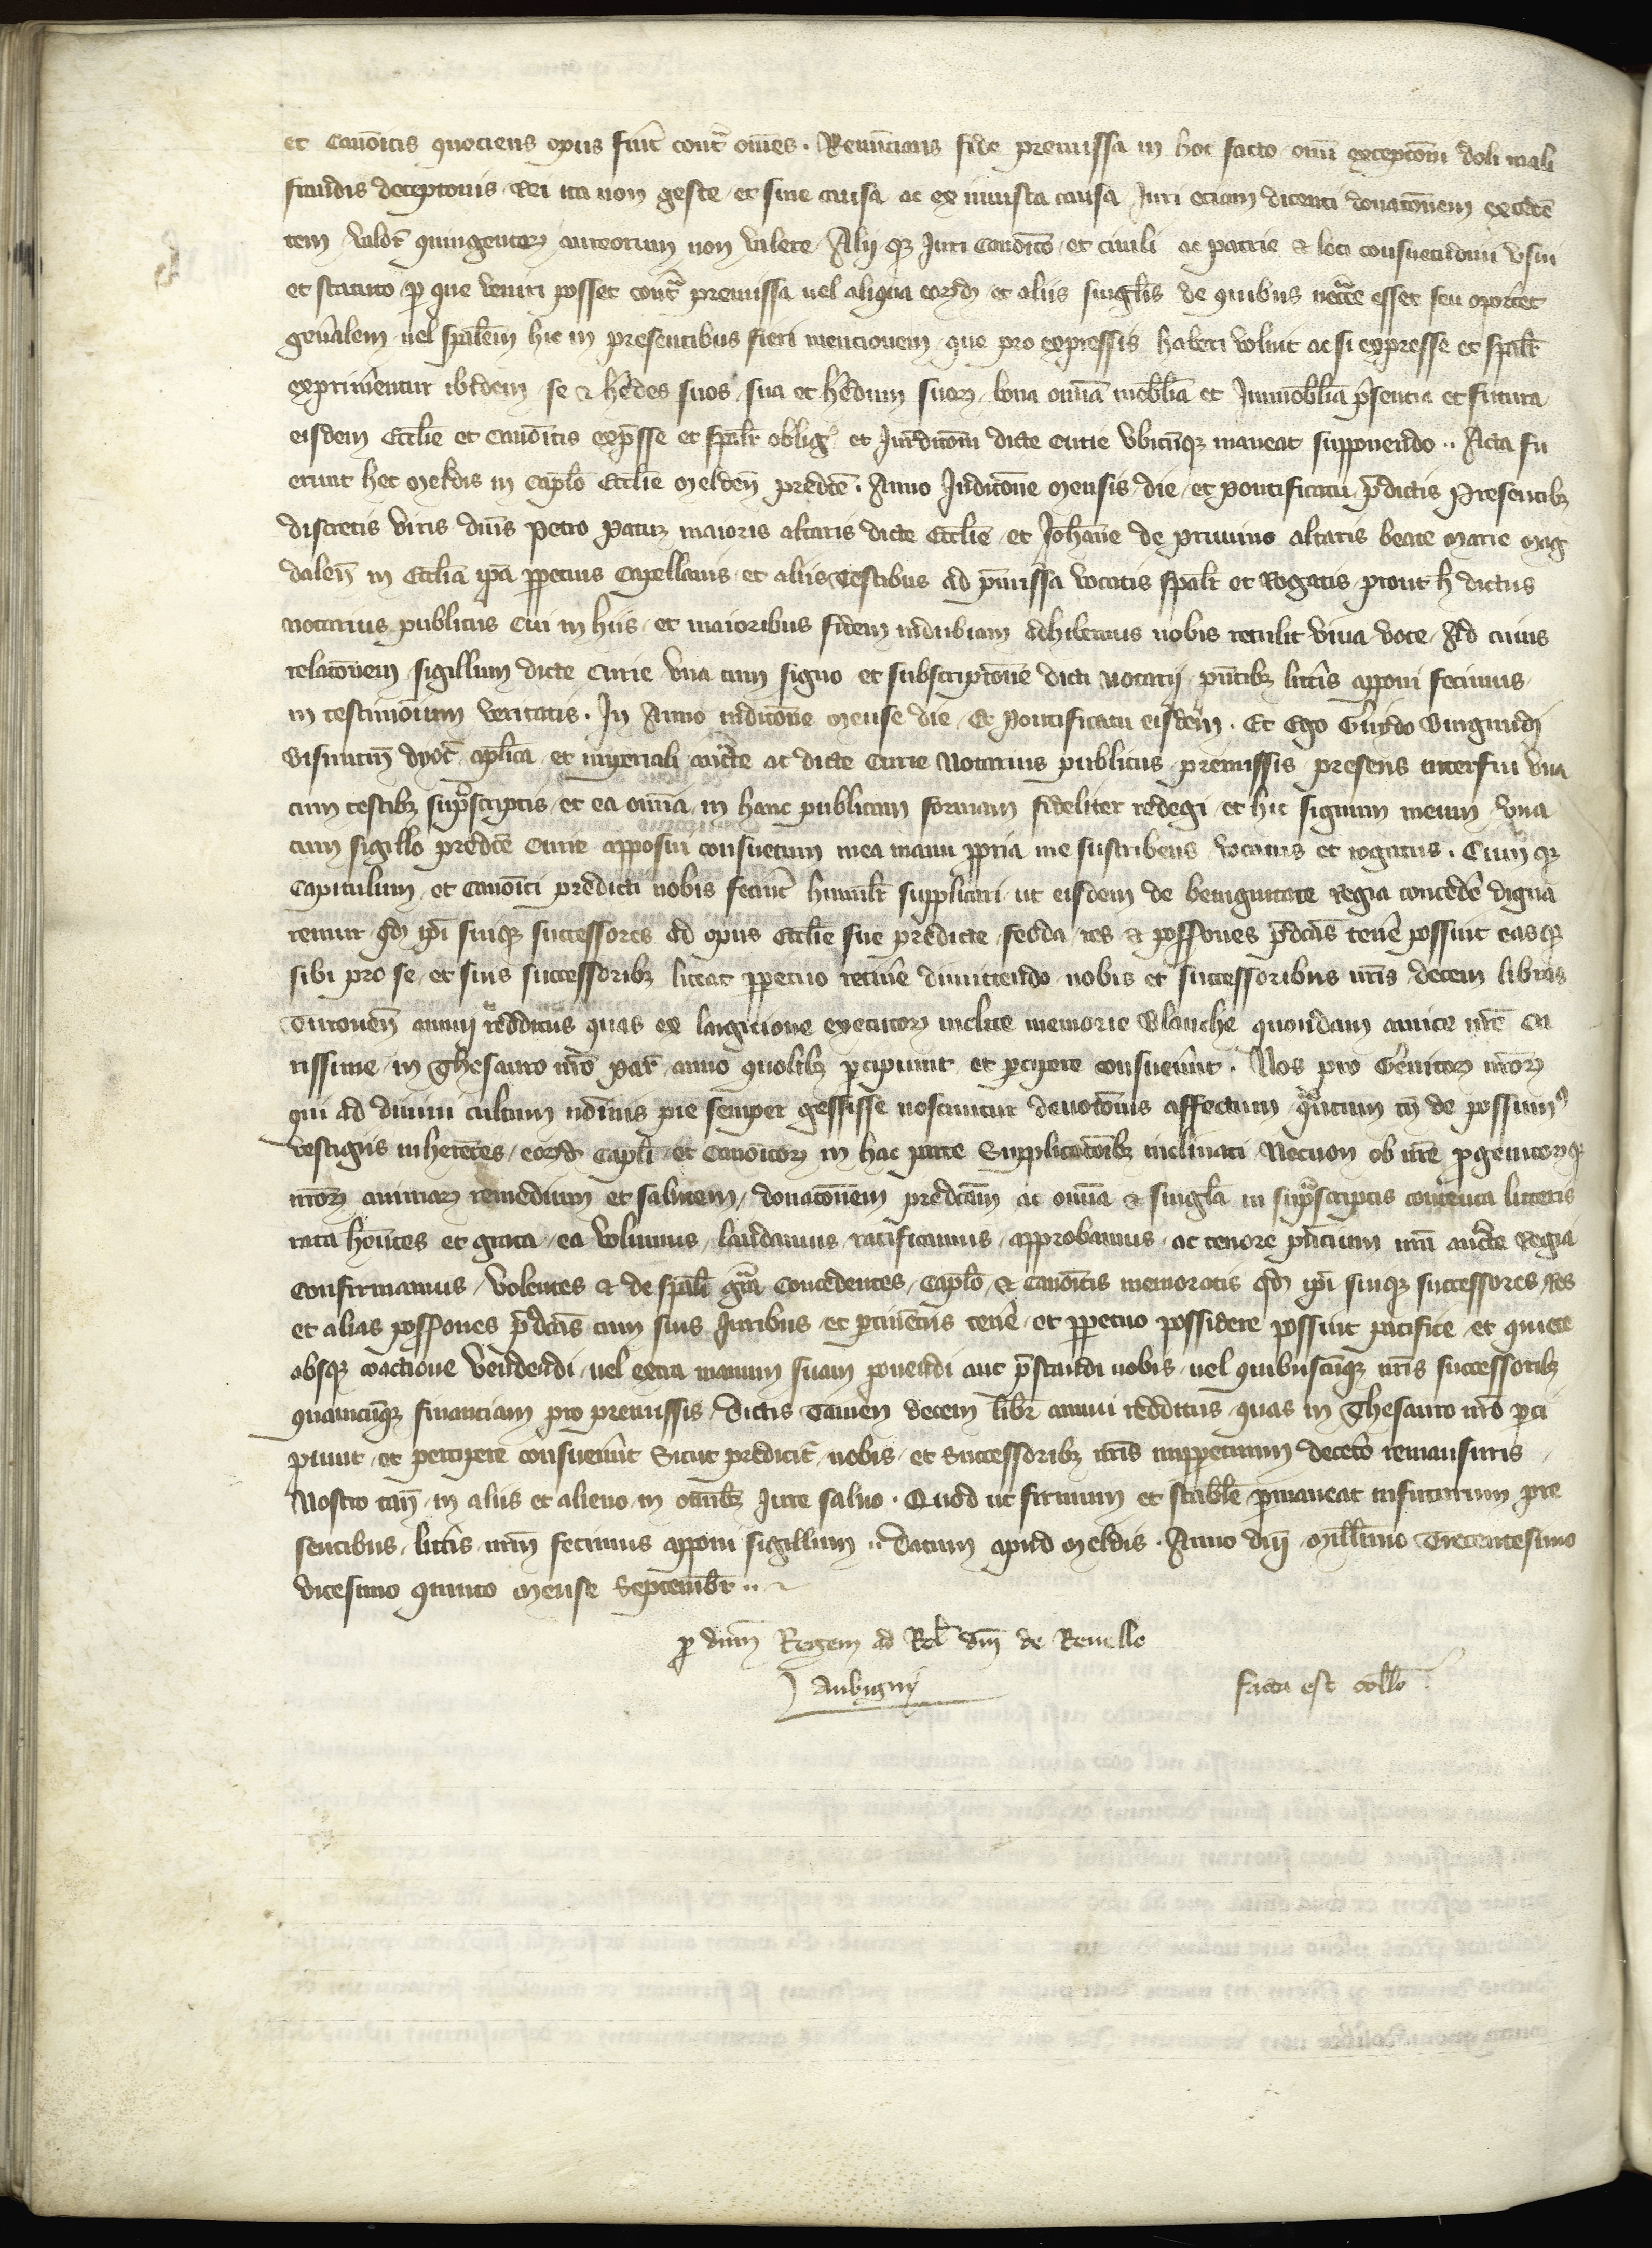 et Canoicis quociens opus fuit cont̾ omes . Renuncians fide premissa in hoc facto omi exceptoni doli mali
fraudis deceptonis Rei ita non geste et sine causa ac ex iniusta causa Juri eciam dicenti donatonem exceden
tem valore quingentorum aureorum non valere Alii que Juri Canoico et civili ac patrie & loci consuetudini usui
et statuto per que veniri posset contra premissa vel aliqua eorumdem et aliis singlis de quibus necce esset seu oporteret
gen̄alem vel spalem hic in presentibus fieri mencionem que pro expressis haberi voluit ac si expresse et spalr
exprimentur ibidem se & hedes suos sua et hedum suorum bona omia mobilia et Immobilia psentia et futura
eisdem Ecclie et Canoicis expsse et spalr oblig et Jurditoni dicte Curie ubicunque maneat supponendo .. Acta fu
erunt hec Meldis in Caplo Ecclie Melden predce . Anno Inditone Mensis die et pontificatu pdictis Presentibz
discretis viris dnis Petro maioris altaris dicte Ecclie et Johanne de Pruvino altaris beate Marie Mag
dalen in Ecclia ipa ppetuis Capellanis et aliis Testibus ad pmissa vocatis spalr et Rogatis prout h dictus
Notarius publicus Cui in hiis et maioribus fidem indubiam adhibemus nobis retulit viva voce Ad cuius
relatonem sigillum dicte Curie una cum signo et subscriptone dicti Notarii pntibz littis apponi fecimus
in testimonium veritatis . In Anno inditone Mense die Et Pontificatu eisdem . Et Ego Guydo Burgundi
Bisuntin dyoc aplica et imperiali aucte ac dicte Curie Notarius publicus premissis presens interfui una
cum testibz suprascriptis et ea omia in hanc publicam formam fideliter redegi et hic signum meum una
cum sigillo predce Curie apposui consuetum mea manu ppria me suscribens vocatus et rogatus . Cum qz
Capitulum et Canoici predicti nobis fecint humilr supplicari ut eisdem de benignitate Regia concede digna
remur qd ipi suiqz successores ad opus Ecclie sue predicte feoda res & possones pdcas tene possint easqz
sibi pro se et suis successoribz liceat ppetuo retine dimittendo nobis et successoribus nris decem libras
Turonen annui redditus quas ex largicione executorum inclite memorie Blanche quondam amice nre Ca
rissime in Thesauro nro Par anno quolibz pcipiunt et pcipere consueunt . Nos pro Genitorum nrorum
qui ad divini cultum nominis pie semper gessisse noscuntur devotonis affectum quantum cum de possumus
vestigiis inherentes eorumdem Capli et Canoicorum in hac parte Supplicatonibz inclinati Necnon ob nre progenitorumqz
nrorum animarum remedium et salutem donatonem predcam ac omia & singla in suprascriptis contenta litteris
rata hentes et grata ea volumus laudamus ratificamus approbamus ac tenore pncium nra aucte Regia
Confirmamus Volentes & de spali gra Concedentes Caplo & Canoicis memoratis qd ipi suiqz successores res
et alias possones pdcas cum suis Juribus et ptinenciis tene et ppetuo possidere possint pacifice et quiete
absqz coactione vendendi vel extra manum suam ponendi aut pstandi nobis vel quibuscunqz nris successoribz
quamcunqz financiam pro premissis Dictis Tamen decem libr annui redditus quas in Thesauro nro pci
piunt et percipere consueunt Sicut predicitur nobis et Successoribz nris imppetuum decetero remansuris
Nostro tam in aliis et alieno in omibz Jure salvo . Quod ut firmum et stabile pmaneat infuturum pre
sentibus littis nrm fecimus apponi sigillum .. Datum apud Meldis . Anno dni Millimo Trecentesimo
vicesimo quinto Mense Septembr ..
p dnm Regem ad Rel dni de Revello
Aubigny
facta est collo